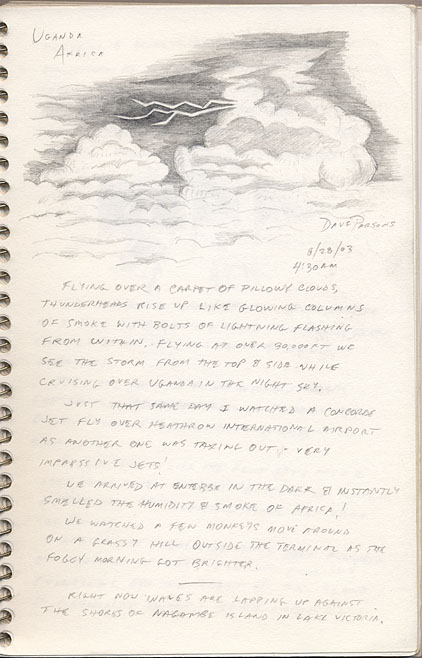 UGANDA
AFRICA
DAVE PARSONS
8/28/93
4:30 AM
FLYING OVER A CARPET OF PILLOWY CLOUDS,
THUNDERHEADS RISE UP LIKE GLOWING COLUMNS
OF SMOKE WITH BOLTS OF LIGHTNING FLASHING
FROM WITHIN. FLYING AT OVER 30,000FT WE
SEE THE STORM FROM THE TOP & SIDE WHILE
CRUISING OVER UGANDA IN THE NIGHT SKY.
JUST THAT SAME DAY I WATCHED A CONCORDE
JET FLY OVER HEATHROW INTERNATIONAL AIRPORT
AS ANOTHER ONE WAS TAXIING OUT - VERY
IMPRESSIVE JETS!
WE ARRIVED AT ENTEBBE IN THE DARK & INSTANTLY
SMELLED THE HUMIDITY & SMOKE OF AFRICA!
WE WATCHED A FEW MONKEYS MOVE AROUND
ON A GRASSY HILL OUTSIDE THE TERMINAL AS THE
FOGGY MORNING GOT BRIGHTER.
RIGHT NOW WAVES ARE LAPPING UP AGAINST
THE SHORES OF NAGOMBE ISLAND IN LAKE VICTORIA.